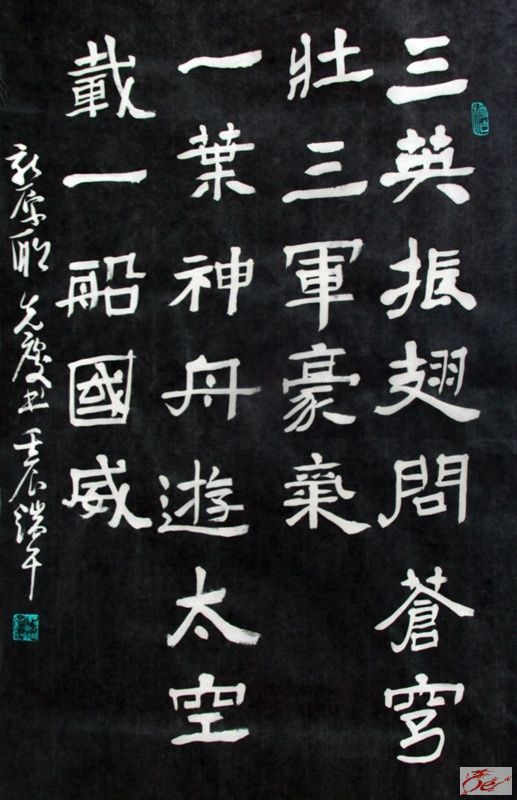 三英振翅問蒼穹
壯三軍豪氣
一葉神舟遊太空
載一船國威
書壬辰端午